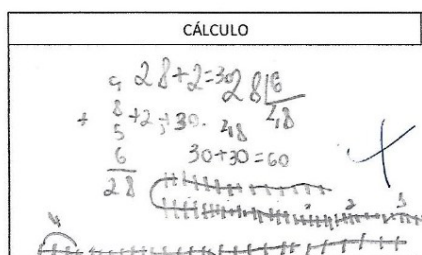 CÁLCULO
9 28+2=30 28|6
+ 8 +2 +30. 4,8
5 48
6 30+30=60
28
4 2 3